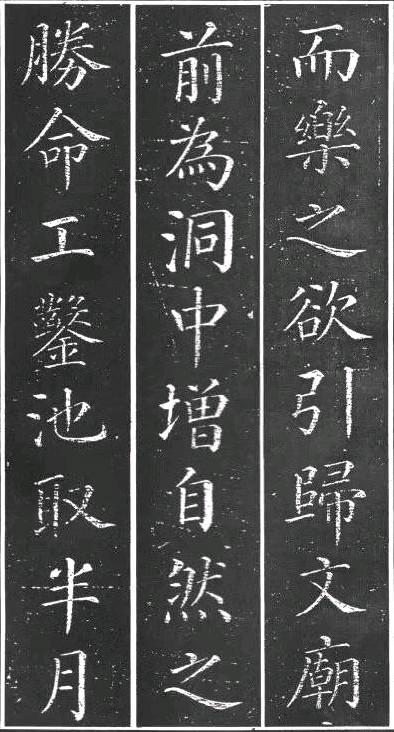 而樂之欲引歸文廟
前為洞中増自然之
勝命工鑿池取半月